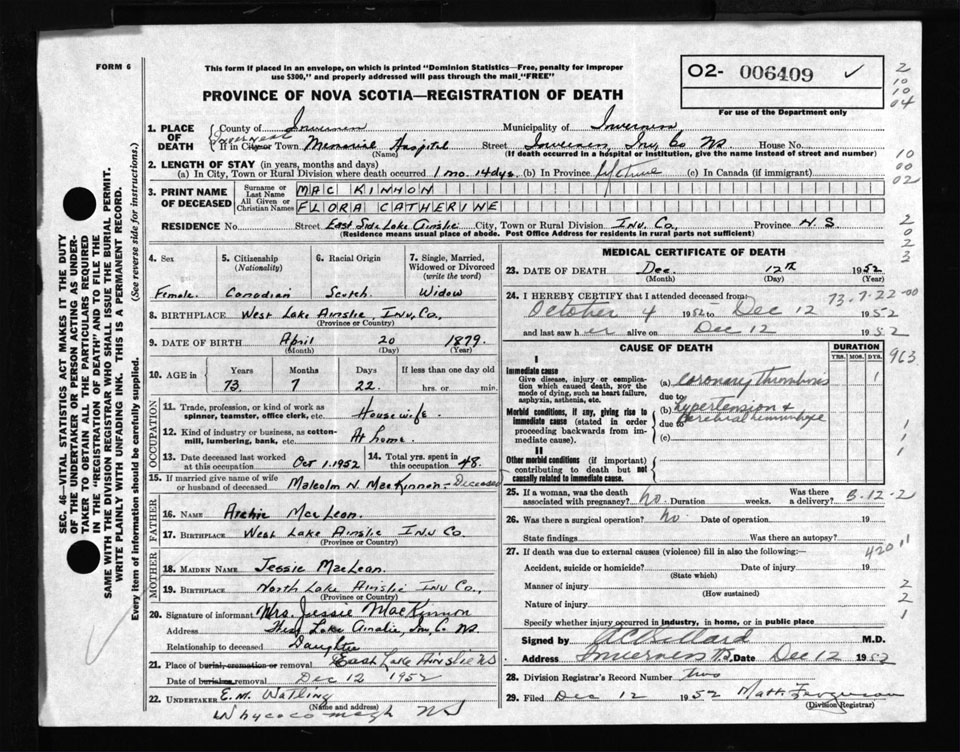 FORM 6
This form if placed in an envelope, on which is printed "Dominion Statistics—Free, penalty for improper
use $300," and properly addressed will pass through the mail "FREE"
PROVINCE OF NOVA SCOTIA—REGISTRATION OF DEATH
O2- 006409 ✓
For use of the Department only
2
10
10
04
10
00
02
2
0
2
3
SEC. 46—VITAL STATISTICS ACT MAKES IT THE DUTY
OF THE UNDERTAKER OR PERSON ACTING AS UNDER-
TAKER TO OBTAIN ALL THE PARTICULARS REQUIRED
IN THE "REGISTRATION OF DEATH" AND TO FILE THE
SAME WITH THE DIVISION REGISTRAR WHO SHALL ISSUE THE BURIAL PERMIT.
WRITE PLAINLY WITH UNFADING INK. THIS IS A PERMANENT RECORD.
Every item of information should be carefully supplied. (See reverse side for instructions.)
1. PLACE OF DEATH County of Inverness Municipality of Inverness
If in City or Town Inverness Memorial Hospital Street Inverness, Inv. Co NS House No.
(Name) (If death occurred in a hospital or institution, give the name instead of street and number)
2. LENGTH OF STAY (in years, months and days)
(a) In City, Town or Rural Division where death occurred 1 mo. 14 dys. (b) In Province lifetime (c) In Canada (if immigrant)
3. PRINT NAME OF DECEASED Surname or Last Name MAC KINNON
All Given or Christian Names FLORA CATHERINE
RESIDENCE No. Street East Side Lake Ainslie City, Town or Rural Division INV. Co. Province N. S.
(Residence means usual place of abode. Post Office Address for residents in rural parts not sufficient)
4. Sex 5. Citizenship (Nationality) 6. Racial Origin 7. Single, Married, Widowed or Divorced (write the word)
Female. Canadian Scotch. Widow
8. BIRTHPLACE West Lake Ainslie Inv. Co.,
(Province or Country)
9. DATE OF BIRTH April 20 1879.
(Month) (Day) (Year)
10. AGE in Years Months Days If less than one day old
73. 7 22. hrs. or min.
OCCUPATION
11. Trade, profession, or kind of work as spinner, teamster, office clerk, etc. Housewife.
12. Kind of industry or business, as cotton-mill, lumbering, bank, etc. At home.
13. Date deceased last worked at this occupation Oct 1. 1952 14. Total yrs. spent in this occupation 48.
15. If married give name of wife or husband of deceased Malcolm N. MacKinnon - Deceased
FATHER
16. NAME Archie MacLean.
17. BIRTHPLACE West Lake Ainslie Inv Co.
(Province or Country)
MOTHER
18. MAIDEN NAME Jessie MacLean.
19. BIRTHPLACE North Lake Ainslie Inv Co.,
(Province or Country)
20. Signature of informant Mrs. Jessie MacKinnon
Address West Lake Ainslie, Inv. Co NS.
Relationship to deceased Daughter
21. Place of burial, cremation or removal East Lake Ainslie NS
Date of burial or removal Dec 12 1952
22. UNDERTAKER E. M. Watling
(Name and address)
Whycocomagh NS
MEDICAL CERTIFICATE OF DEATH
23. DATE OF DEATH Dec. 12th 1952
(Month) (Day) (Year)
24. I HEREBY CERTIFY that I attended deceased from 73-7-22-00
October 4 1952 to Dec 12 1952
and last saw her alive on Dec 12 1952
CAUSE OF DEATH DURATION
YRS. MOS. DYS. 963
I
Immediate cause
Give disease, injury or complication which caused death, NOT the mode of dying, such as heart failure, asphyxia, asthenia, etc. (a) coronary thrombosis 1
due to
Morbid conditions, if any, giving rise to immediate cause (stated in order proceeding backwards from immediate cause). (b) hypertension &
due to cerebral hemorrhage 1
(c) 1
1
II
Other morbid conditions (if important) contributing to death but not causally related to immediate cause.
25. If a woman, was the death associated with pregnancy? no. Duration weeks. Was there a delivery? B-12-2
26. Was there a surgical operation? no. Date of operation 19
State findings Was there an autopsy?
27. If death was due to external causes (violence) fill in also the following:— 420 11
Accident, suicide or homicide? Date of injury 19
(State which)
Manner of injury 2
(How sustained)
Nature of injury 2
Specify whether injury occurred in industry, in home, or in public place 1
Signed by M.D.
Address Inverness N.S. Date Dec 12 1952
28. Division Registrar's Record Number Two
29. Filed Dec 12 1952 Matt. Ferguson
(Division Registrar)